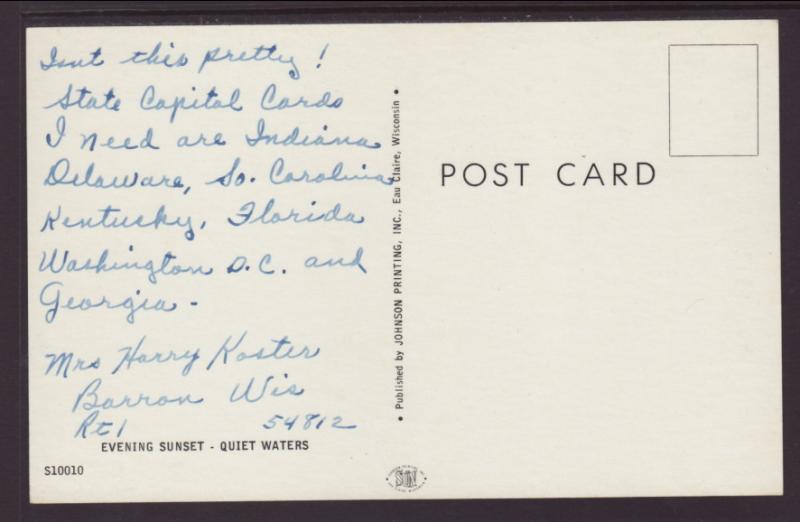 Isnt this pretty!
State Capital Cards
I need are Indiana
Delaware, So. Carolina
Kentucky, Florida
Washington D.C. and
Georgia -
Mrs Harry Koster
Barron Wis
Rt 1 54812
EVENING SUNSET - QUIET WATERS
S10010
• Published by JOHNSON PRINTING, INC., Eau Claire, Wisconsin •
POST CARD